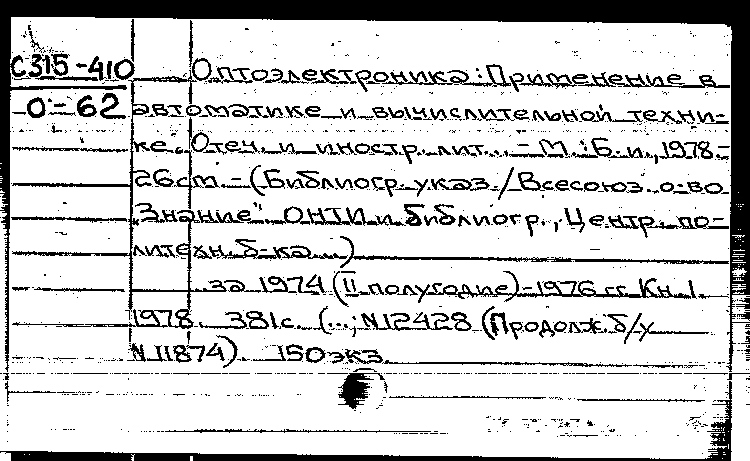 С315-410 Оптоэлектроника: Применение в
О-62 автоматике и вычислительной техни-
ке. Отеч. и иностр. лит... - М.: Б. и., 1978.-
26см. - (Библиогр. указ. / Всесоюз. о-во
"Знание". ОНТИ и библиогр., Центр. по-
литехн. б-ка ...)
за 1974 (II полугодие)-1976 гг. Кн. 1.
1978. 381с. (...; N12428 (Продолж. б/у
N 11874). 150экз.